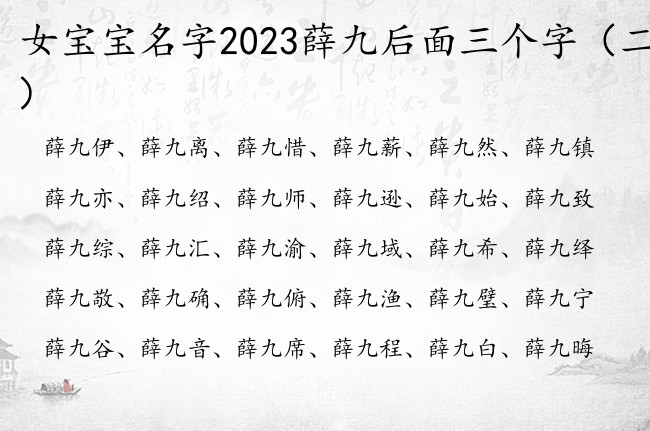 女宝宝名字2023薛九后面三个字（二
）
薛九伊、薛九离、薛九惜、薛九薪、薛九然、薛九镇
薛九亦、薛九绍、薛九师、薛九逊、薛九始、薛九致
薛九综、薛九汇、薛九渝、薛九域、薛九希、薛九绎
薛九敬、薛九确、薛九俯、薛九渔、薛九璧、薛九宁
薛九谷、薛九音、薛九席、薛九程、薛九白、薛九晦